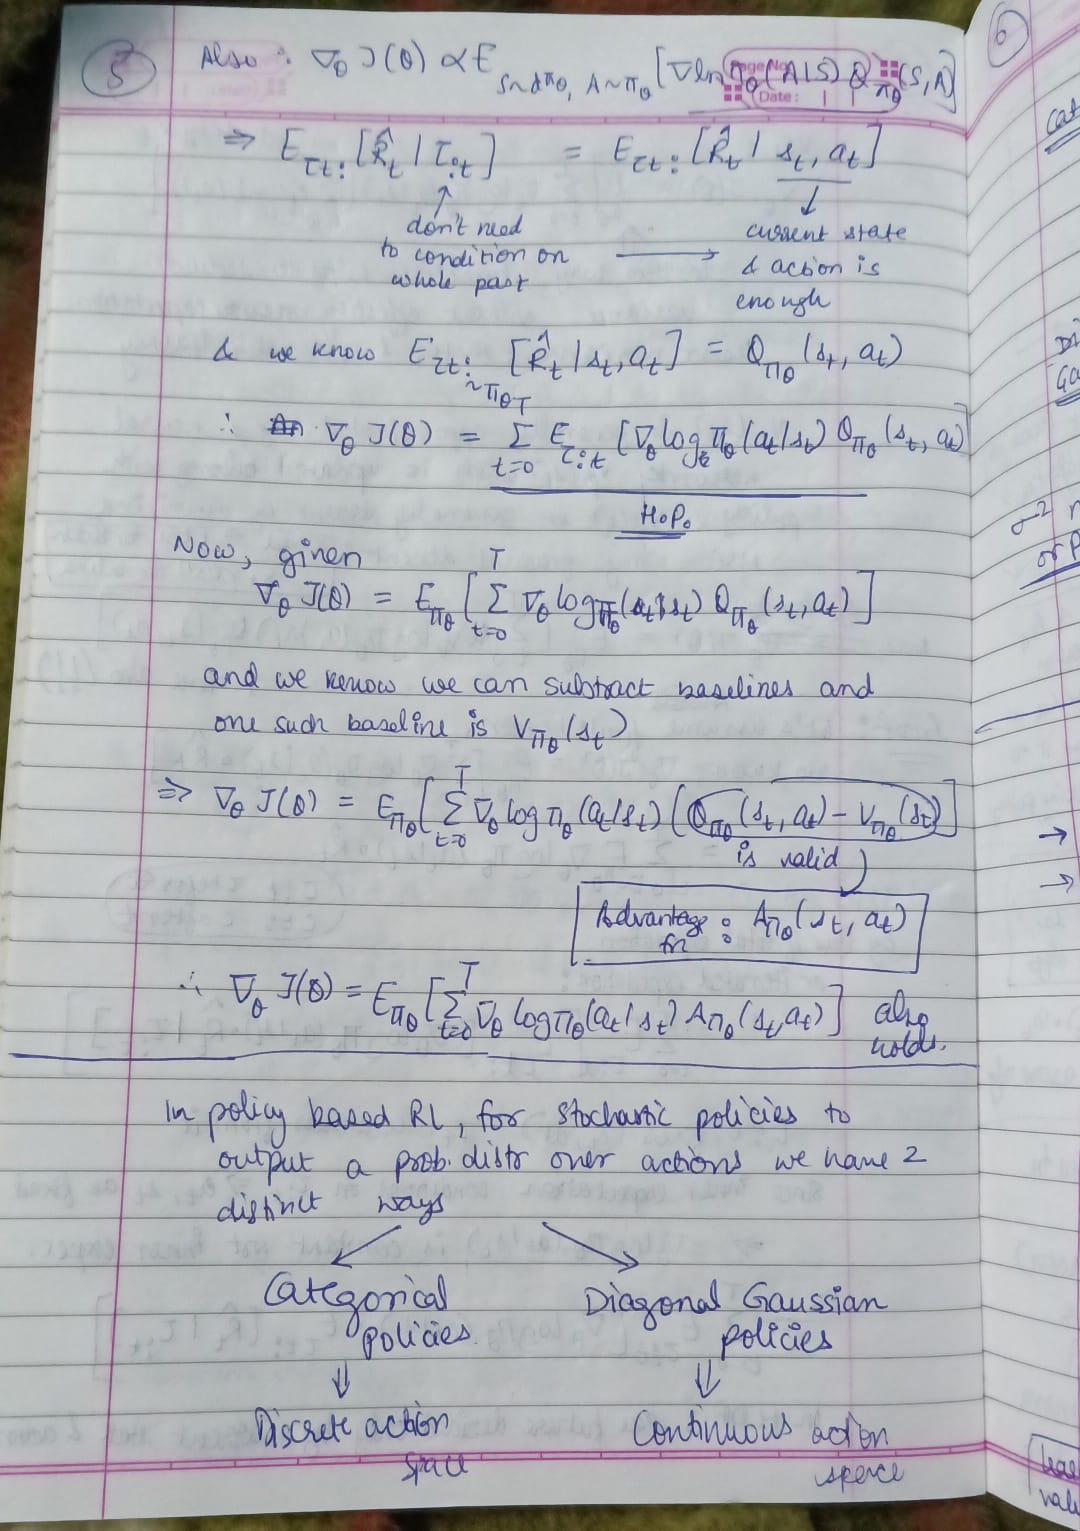 5
Also : ∇θ J(θ) ∝ E S~dπθ, A~πθ [∇ln πθ(A|S) Qπθ(S,A)]
Page No.
Date:
⇒ E τt: [R̂t | τ:t] = E τt: [R̂t | st, at]
↑ ↓
don't need current state
to condition on → & action is
whole past enough
& we know E τt: ~πθ [R̂t | st, at] = Qπθ (st, at)
∴ ∇θ J(θ) = T Σ t=0 E τ:t [∇θ log πθ (at|st) Qπθ (st, at)]
H.P.
Now, given
∇θ J(θ) = Eπθ [ T Σ t=0 ∇θ log πθ (at|st) Qπθ (st, at) ]
and we know we can subtract baselines and
one such baseline is Vπθ (st)
⇒ ∇θ J(θ) = Eπθ [ T Σ t=0 ∇θ log πθ (at|st) (Qπθ (st, at) - Vπθ (st)) ]
is valid
Advantage fn : Aπθ (st, at)
∴ ∇θ J(θ) = Eπθ [ T Σ t=0 ∇θ log πθ (at|st) Aπθ (st, at) ] also
holds.
In policy based RL, for stochastic policies to
output a prob. distr over actions we have 2
distinct ways
Categorical Diagonal Gaussian
policies policies
⇓ ⇓
Discrete action Continuous action
space space
6
Cat
σ² n
or P
→
→